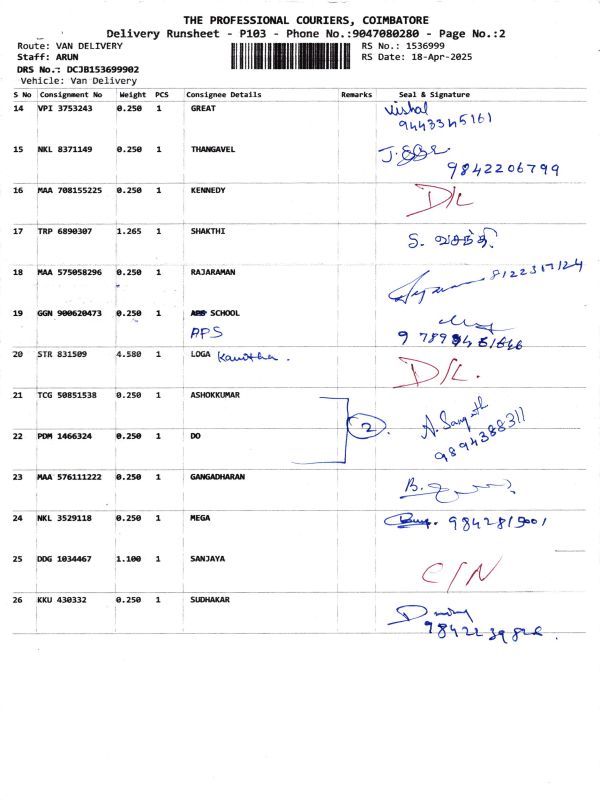 THE PROFESSIONAL COURIERS, COIMBATORE
Delivery Runsheet - P103 - Phone No.:9047080280 - Page No.:2
Route: VAN DELIVERY RS No.: 1536999
Staff: ARUN RS Date: 18-Apr-2025
DRS No.: DCJB153699902
Vehicle: Van Delivery
S No Consignment No Weight PCS Consignee Details Remarks Seal & Signature
14 VPI 3753243 0.250 1 GREAT Vishal
9443345161
15 NKL 8371149 0.250 1 THANGAVEL
9842206799
16 MAA 708155225 0.250 1 KENNEDY D/L
17 TRP 6890307 1.265 1 SHAKTHI S. வசந்தி
18 MAA 575058296 0.250 1 RAJARAMAN
19 GGN 900620473 0.250 1 SCHOOL
APS
20 STR 831509 4.580 1 LOGA Kavitha. D/L.
21 TCG 50851538 0.250 1 ASHOKKUMAR
2
9894388311
22 PDM 1466324 0.250 1 DO
23 MAA 576111222 0.250 1 GANGADHARAN B.
24 NKL 3529118 0.250 1 MEGA
25 DDG 1034467 1.100 1 SANJAYA C/N
26 KKU 430332 0.250 1 SUDHAKAR